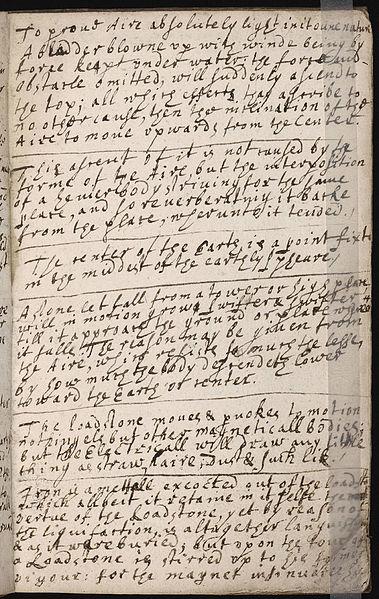 To proue Aire absolutely light in it owne nature
A bladder blowne up with winde being by
force kept under water; the force and
Obstacle omitted, will suddenly ascend to
the top; all which effects they ascribe to
no other cause, then the inclination of the
Aire to move upwards from the Center.
This ascent of it is not caused by the
forme of the Aire, but the interposition
of a heuier body striuing for the same
place, and so reuerberating it backe
from the place, wherunto it tended.
The center of the Earth is a point fixt
in the middest of the earthly spheare,
A stone let fall from a tower or high place
will in motion grow swifter & swifter
till it approach the ground or place where
it falls: The reason may be giuen from
the Aire, which resists so much the lesse,
by how much the body descendeth lower
toward the Earth or center.
The Loadstone moues & prouokes to motion
nothing els but other magneticall bodies:
but the Electricall will draw any little
thing as straw, haire, dust & such like.
Iron is a mettall excocted out of the Loadstone
which albeit it retaine in it selfe the
vertue of the Loadstone, yet by reason of
the liquifaction, is altogether languishing
& as it were buried; but upon the touch of
a Loadstone is stirred up to his former
vigour: for the magnet insinuates his